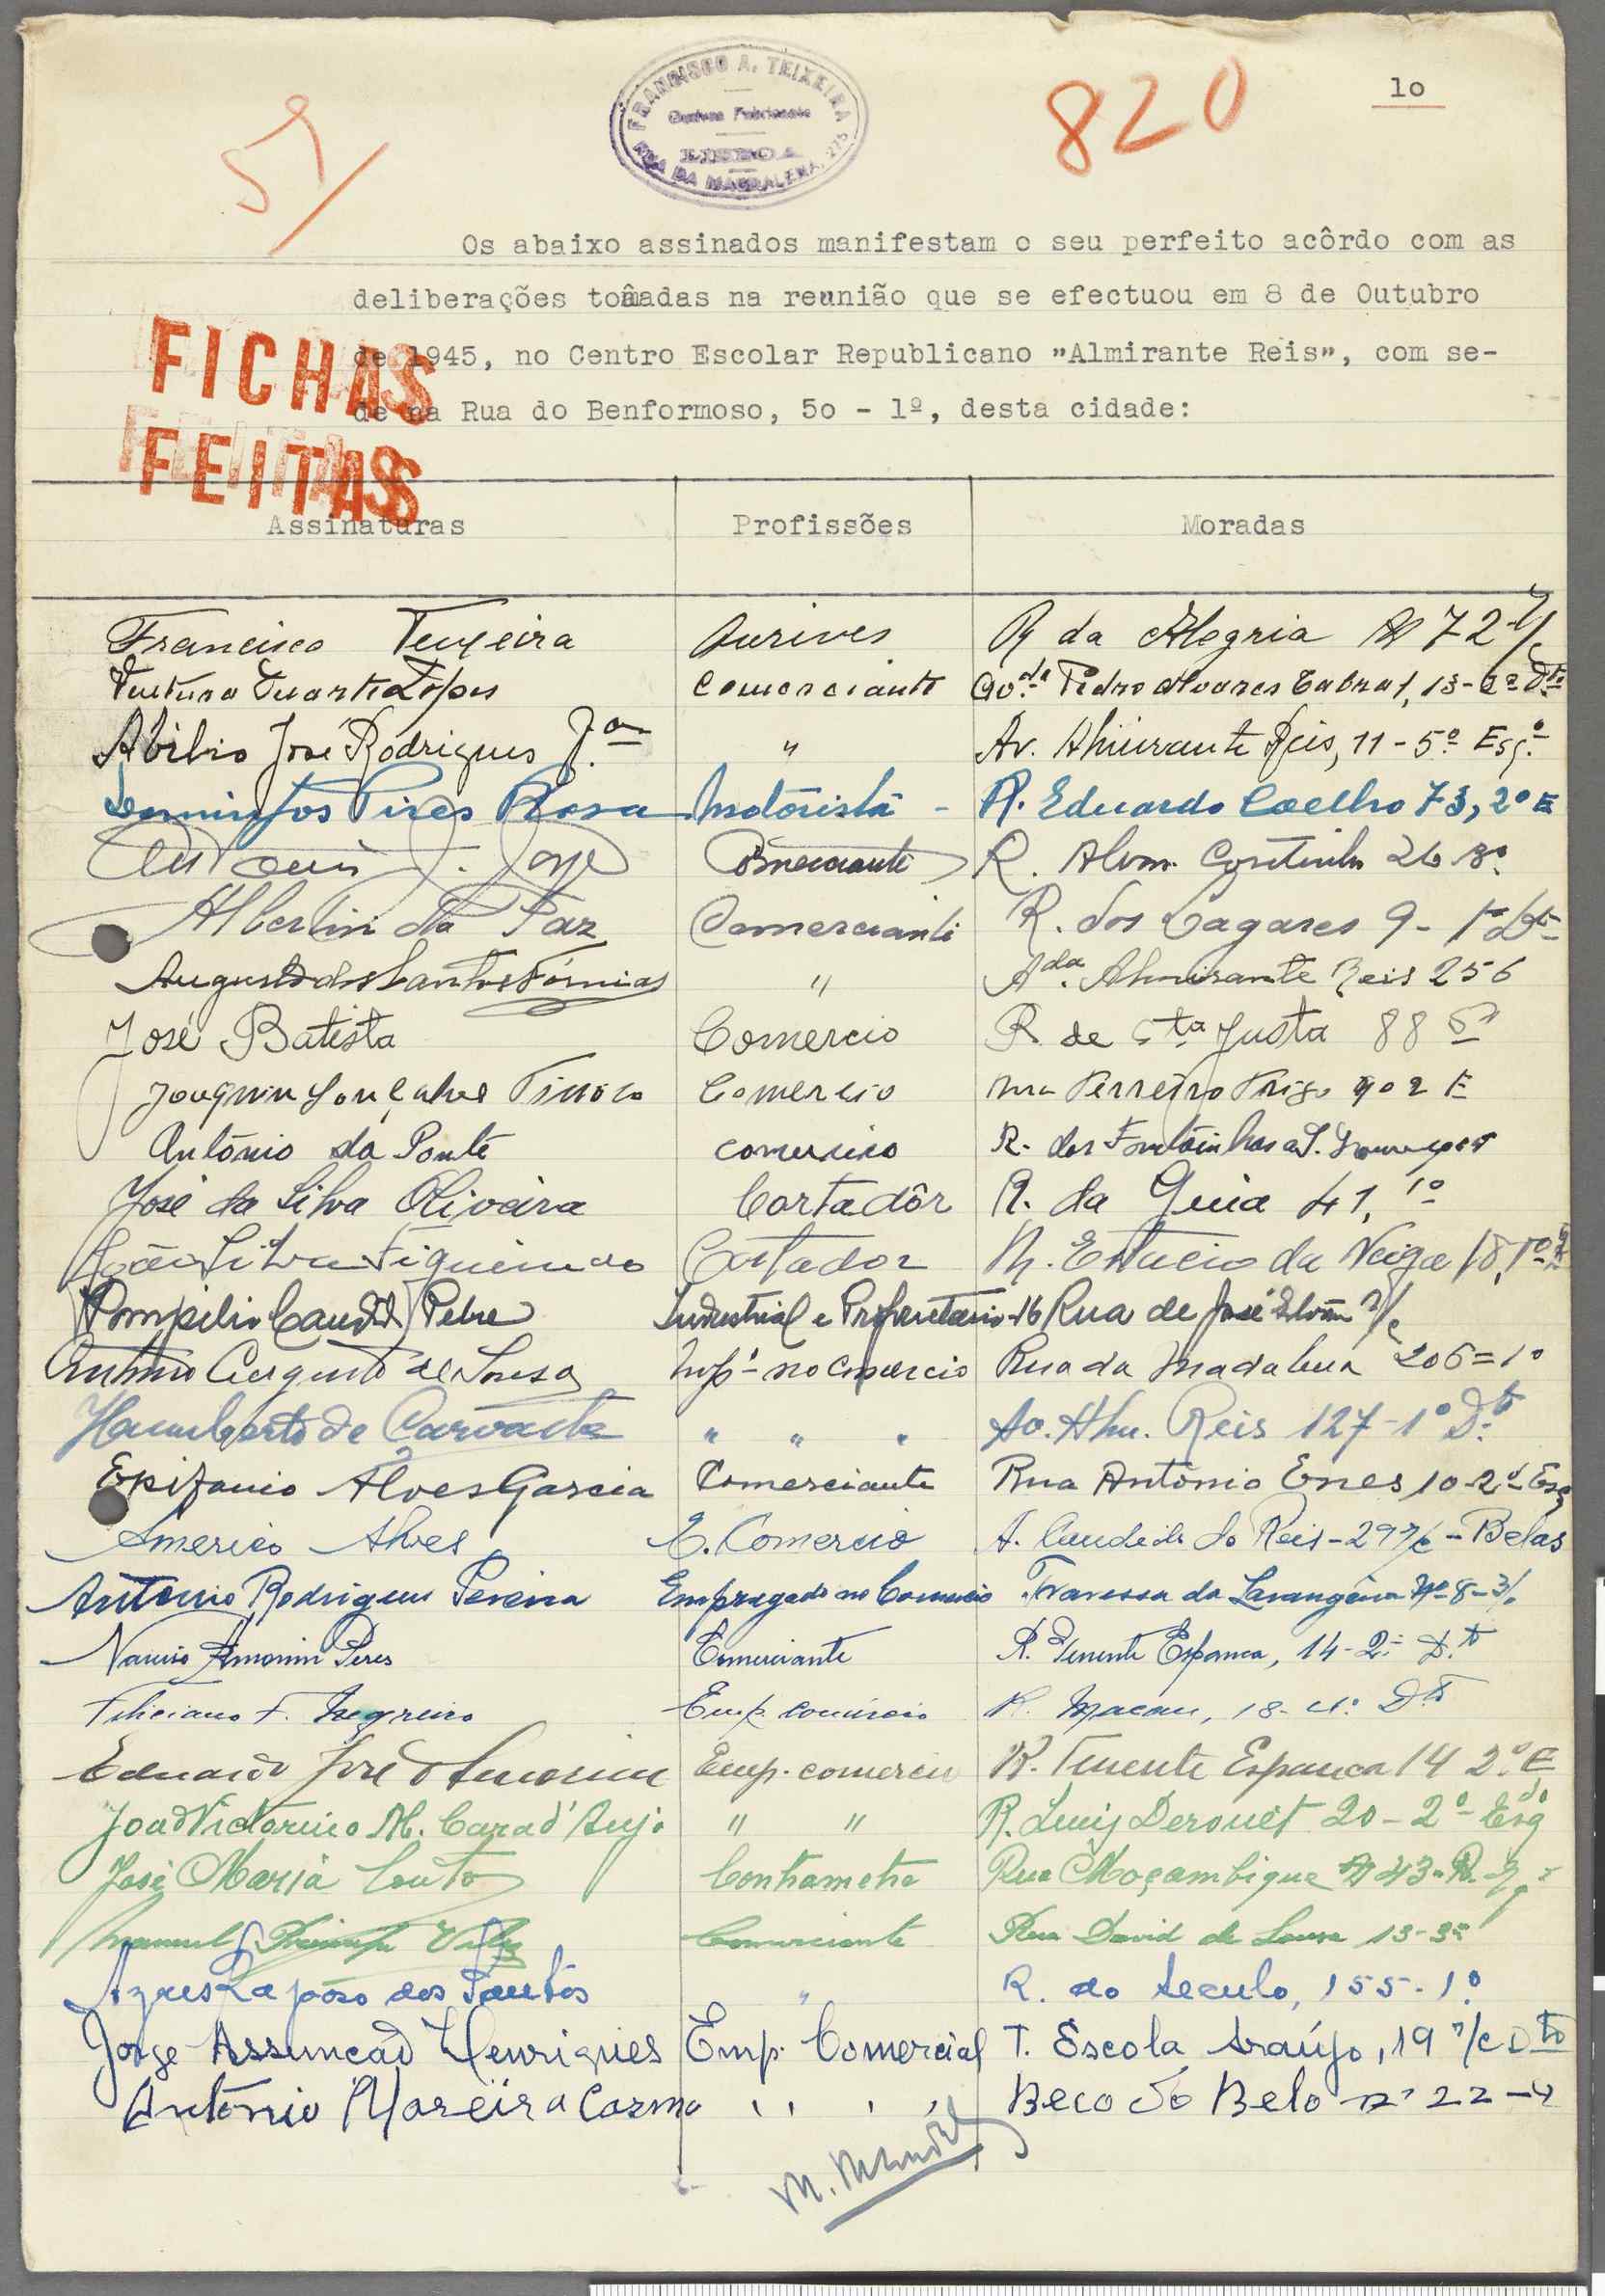 FRANCISCO A. TEIXEIRA
LISBOA
RUA DA MAGDALENA, 273
51/
820
1o
Os abaixo assinados manifestam o seu perfeito acôrdo com as
deliberações tomadas na reunião que se efectuou em 8 de Outubro
de 1945, no Centro Escolar Republicano "Almirante Reis", com se-
de na Rua do Benformoso, 5o - 1º, desta cidade:
FICHAS
FEITAS
Assinaturas Profissões Moradas
Francisco Teixeira Ourives R da Alegria Nº 72
Duarte Lopes Comerciante Avda Pedro Alvares Cabral, 13-2º Dto
Abilio José Rodrigues Jor " Av. Almirante Reis, 11-5º Esqo
Domingos Pires Rosa Motorista - R. Eduardo Coelho 73, 2º E
Comerciante R. Coutinho 26 3º
Albertino da Paz Comerciante R. dos Lagares 9-1º Dto
Augusto dos Santos " Ada. Almirante Reis 256
José Batista Comercio R. de Sta Justa 88
Joaquim Gonçalves Tinoco Comercio Rua Terreiro Trigo
António da Ponte comercio R. das Fontainhas a S. Lourenço
José da Silva Oliveira Cortadôr R. da Guia 41, 1º
João Silva Figueiredo Cortador R. Estacio da Veiga
Pompilio Industrial e Proprietario 16 Rua de José r/c
Augusto de Sousa Empº no Comercio Rua da Madalena 206=1º
Humberto de Carvalho " " " Av. Alm. Reis 127-1º Dto
Epifanio Alves Garcia Comerciante Rua António Enes 10-2º Esq
Americo Alves E. Comercio A. Candido do Reis-29 r/c-Belas
António Rodrigues Pereira Empregado no Comercio Travessa da Larangeira Nº 8-3/
Narciso Amorim Peres Comerciante R. Tenente Espanca, 14-2º D.to
Feliciano F. Negreiro Emp. comércio R. Macau, 18-4º Dto
Eduardo José Amorim Emp. comercio R. Tenente Espanca 14 2º E
João Victorino M. Cara d'Anjo " " R. Luiz Derouet 20-2º Esqo
José Maria Couto Contramestre Rua Moçambique Nº 43
Manuel Comerciante Rua David de Sousa 13-3º
João dos Santos " R. do Seculo, 155-1º
Jorge Assunção Henriques Emp. Comercial T. Escola Araújo, 19 r/c Dto
António Moreira Cosme " " " Beco do Belo nº 22